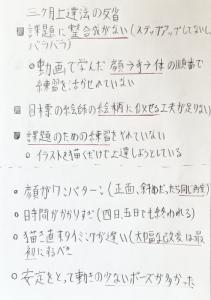 三ヶ月上達法の反省
課題に整合性がない(ステップアップしてないし
バラバラ)
動画で学んだ顔→手→体の順番で
練習を活かせていない
目標の絵師の絵柄に似せる工夫が足りない
課題のための練習をやれていない
イラストを描くだけで上達しようとしている
顔がワンパターン(正面、斜めだったら同じ角度)
日時間がかかりすぎ(四日、五日でも終われる)
描き直すタイミングが遅い(大幅な改変は最
初にやるべき
安定をとって動きの少ないポーズが多かった